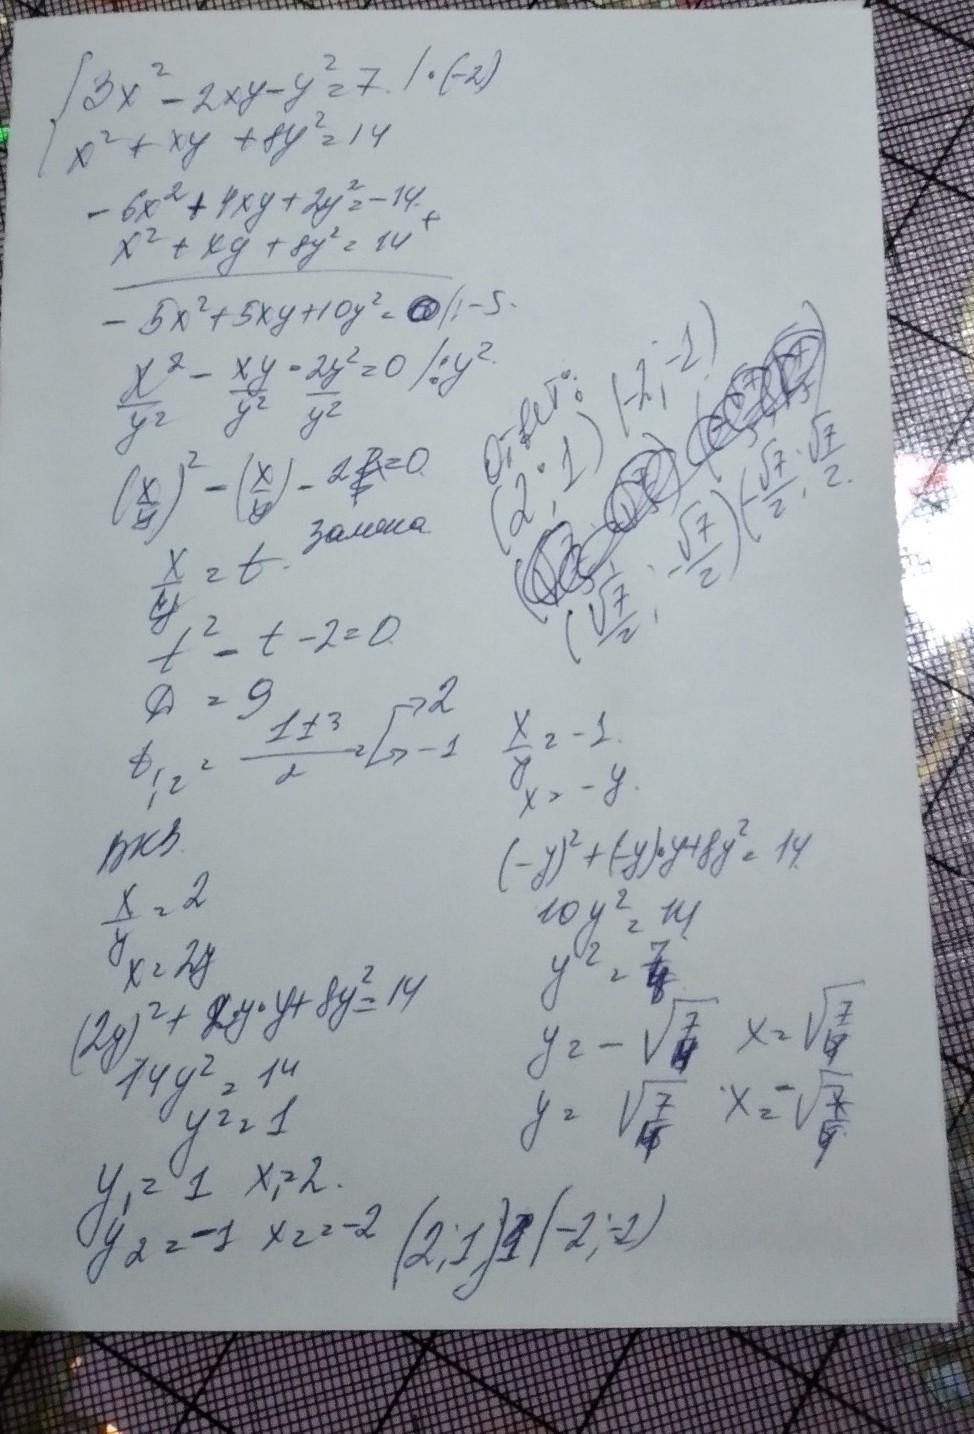 {3x² - 2xy - y² = 7 | · (-2)
x² + xy + 8y² = 14
- 6x² + 4xy + 2y² = -14 +
x² + xy + 8y² = 14
- 5x² + 5xy + 10y² = 0 | : -5.
x²/y² - xy/y² - 2y²/y² = 0 | : y².
(x/y)² - (x/y) - 2 = 0
замена
x/y = t.
t² - t - 2 = 0
D = 9
t₁,₂ = (1±3)/2 = [→ 2 → -1
x = 2y
x/y = 2
(2y)² + 2y·y + 8y² = 14
14y² = 14
y² = 1
y₁ = 1 x₁ = 2.
y₂ = -1 x₂ = -2 (2;1) (-2;-1)
x/y = -1.
x = -y.
(-y)² + (-y)·y + 8y² = 14
10y² = 14
y² = 7/
y = -√7/ x = √7/
y = √7/ x = -√7/
Ответ:
(2;1) (-2;-1)
(√7/2; -√7/2) (-√7/2; √7/2.